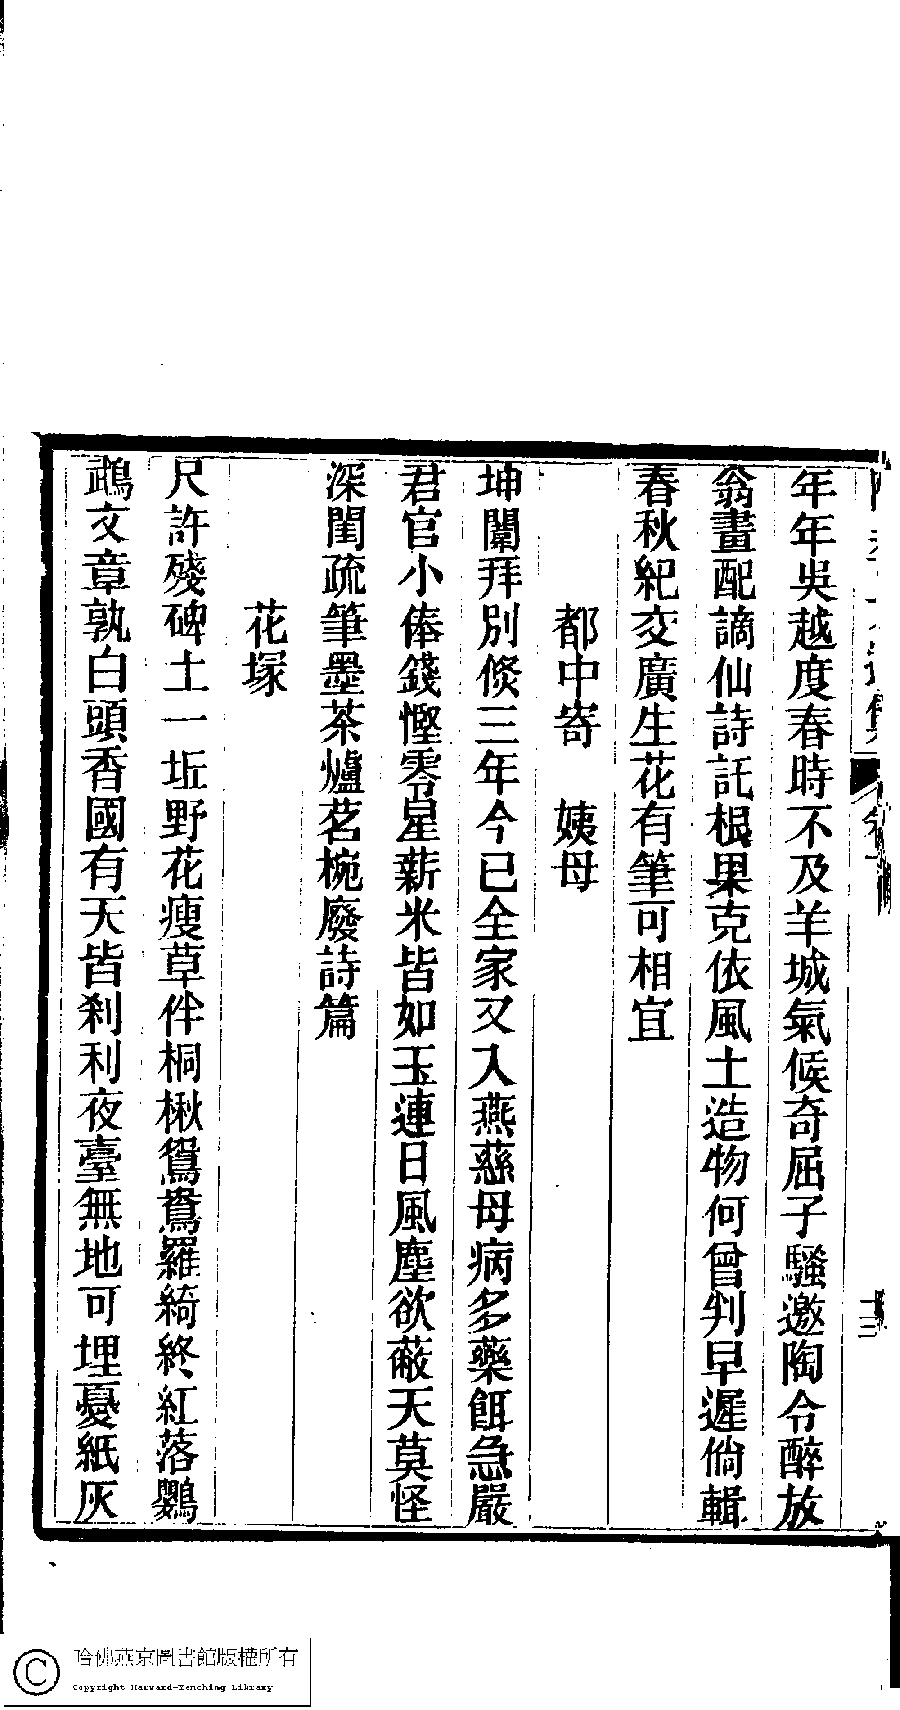 年年吳越度春時不及羊城氣候奇屈子騷邀陶令醉放
翁畫配謫仙詩託根果克依風土造物何曾判早遲倘輯
春秋紀交廣生花有筆可相宜
都中寄　姨母
坤闈拜別倐三年今已全家又入燕慈母病多藥餌急嚴
君官小俸錢慳零星薪米皆如玉連日風塵欲蔽天莫怪
深閨疏筆墨茶爐茗椀廢詩篇
花塚
尺許殘碑土一坵野花瘦草伴桐楸鴛鴦羅綺終紅落鸚
鵡文章孰白頭香國有天皆剎利夜臺無地可埋憂紙灰
哈佛燕京圖書館版權所有
Copyright Harvard-Yenching Library